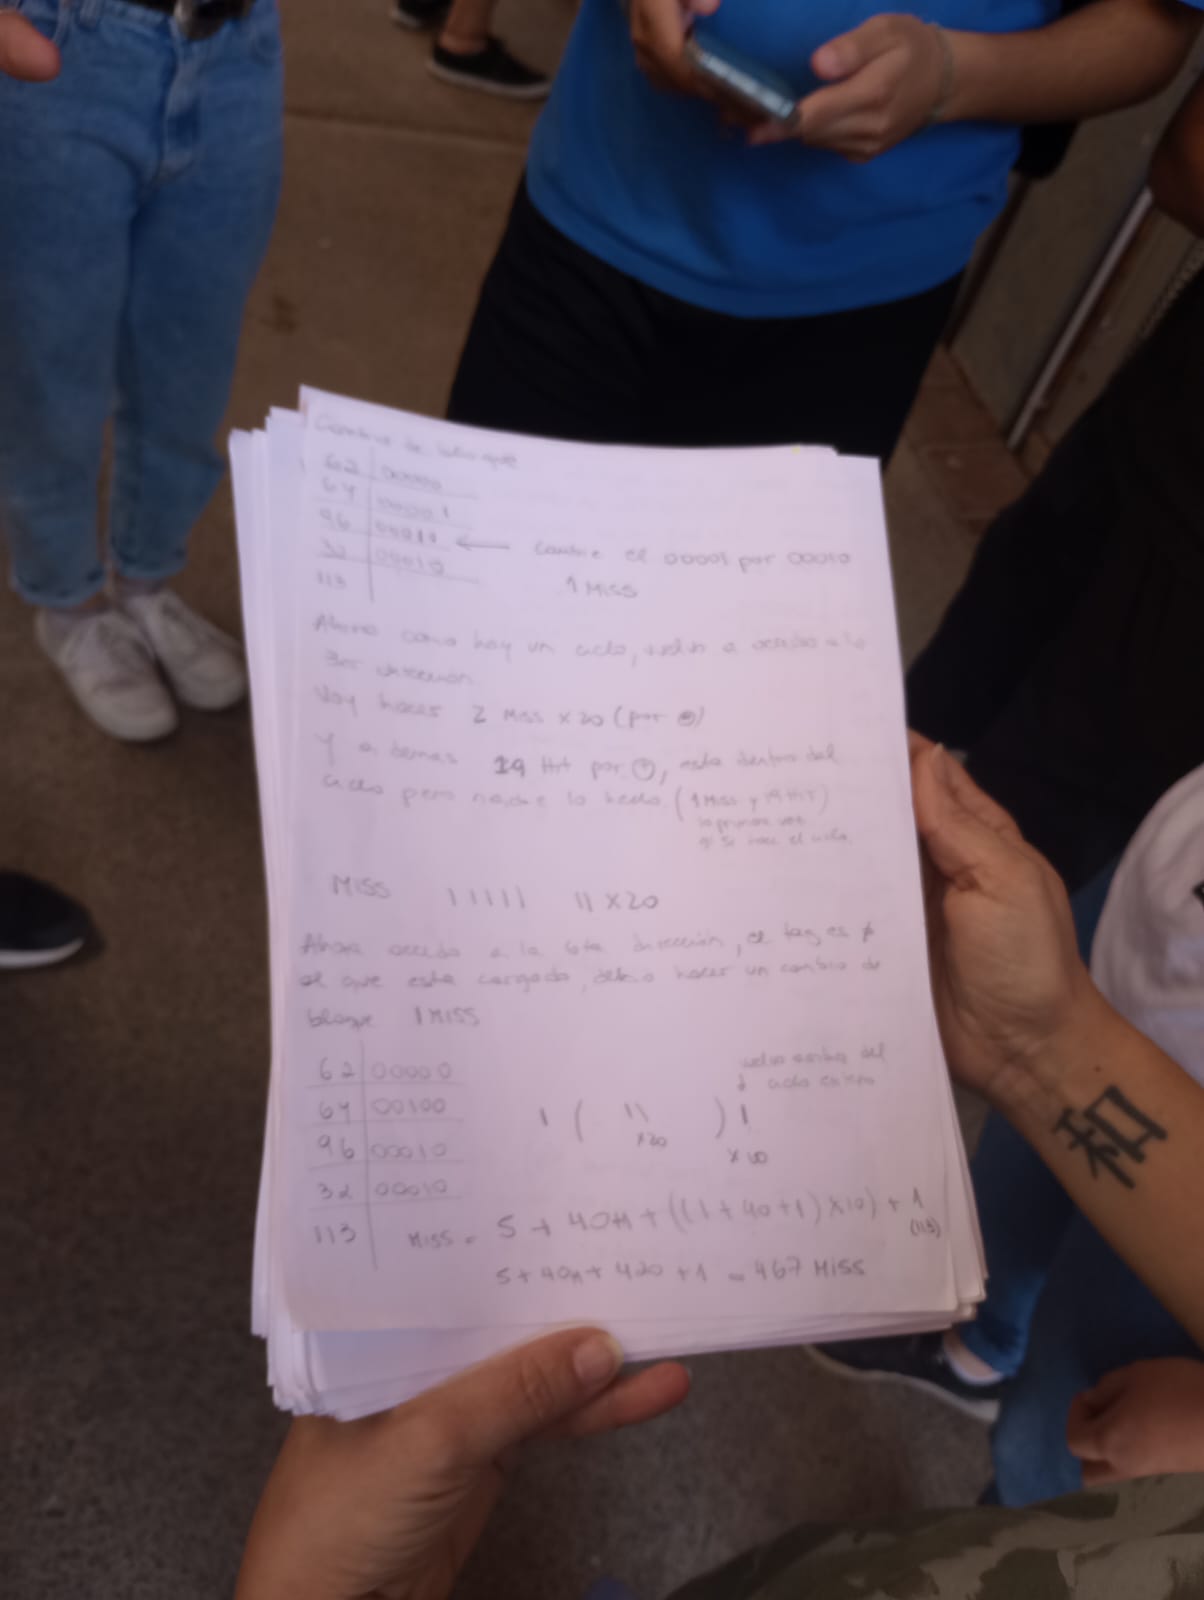 Cambio de bloque
62 00000
64 00001
96 00011 ← Cambie el 00001 por 00010
32 00010
113
1 Miss
Ahora como hay un ciclo, vuelvo a acceder a la
3er dirección.
Voy hacer 2 Miss x 20 (por
Y a demas 19 Hit por esta dentro del
ciclo pero nadie lo (1 Miss y 19 HIT)
la primera vez
q' se hace el ciclo.
MISS 11111 11 x20
Ahora accedo a la 6ta dirección, el tag es ≠
al que esta cargado, debo hacer un cambio de
bloque 1 MISS
62 00000
64 00100
96 00010
32 00010
113
vuelvo del
↓ ciclo externo
1 ( 11 ) 1
x20
x10
MISS = 5 + 40 + ((1 + 40 + 1) x10) + 1
(113)
5 + 40 + 420 + 1 = 467 MISS
和